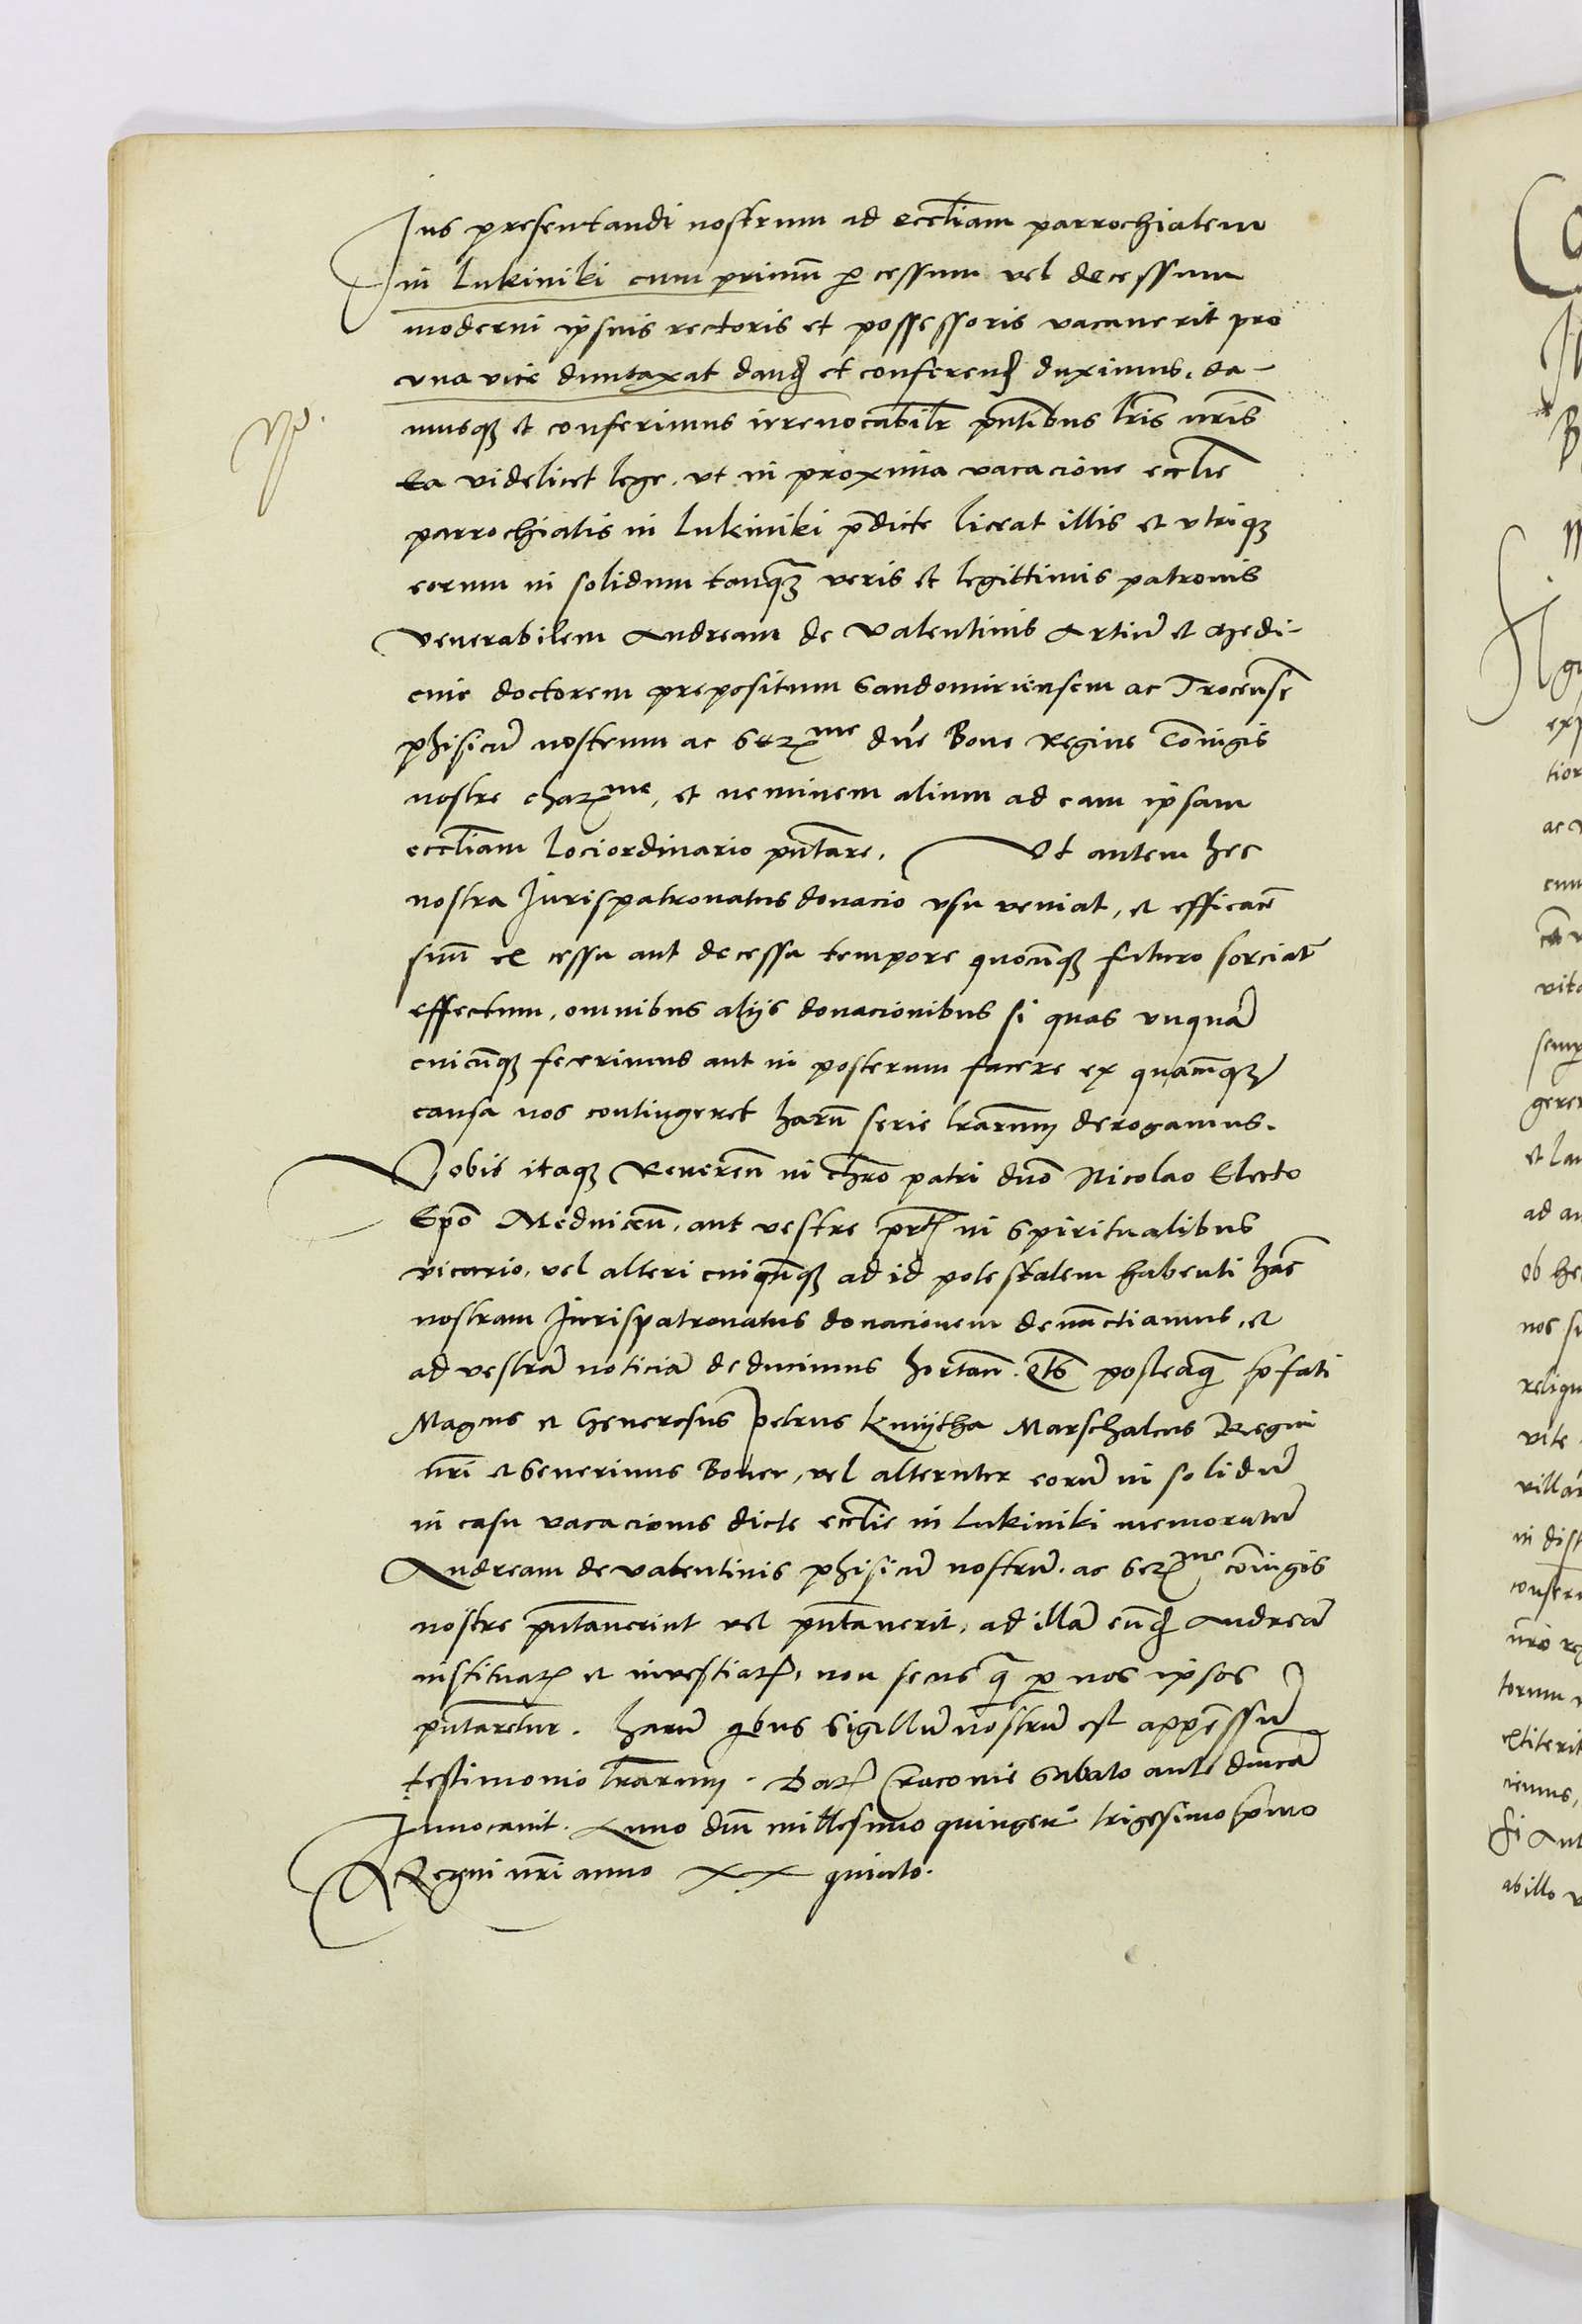 Jus presentandi nostrum ad eccl̄iam parrochialem
in Lukiniki cum primū ꝑ cessum vel decessum
moderni ip̄sius rectoris et possessoris vacauerit pro
vna vice duntaxat dand̄ et conferend̄ duximus, da-
musqꝫ et conferimus irreuocabilr̄ pn̄tibus lr̄is nr̄is
Ea videlicet lege, vt in proxima vacacione eccl̄ie
parrochialis in Lukiniki p̄dicte liceat illis et vtriqꝫ
eorum in solidum tanqꝫ veris et legittimis patronis
Venerabilem Andream de Valentinis Artiū et Medi-
cine doctorem prepositum Sandomiriensem ac Trocensē
phisicū nostrum ac Serᵐᵉ dn̄e Bone Regine Cōiugis
nostre charᵐᵉ, et neminem alium ad eam ipsam
eccl̄iam Lociordinario pn̄tare. Vt autem hec
nostra Jurispatronatus donacio vsu veniat, et efficacē
suū ex cessu aut decessu tempore quocūqꝫ futuro sorciatr̄
effectum, omnibus alijs donacionibus si quas vnquā
cuicūqꝫ fecerimus aut in posterum facere ex quacūqꝫ
causa nos contingeret harū serie lr̄arum derogamus.
Vobis itaqꝫ Reueren̄ in chr̄o patri dn̄o Nicolao Electo
Ep̄o Mednicen̄, aut vestre prt̄ in Spiritualibus
vicario, vel alteri cuicūqꝫ ad id potestatem habenti hāc
nostram Jurispatronatus donacionem denūctiamus, et
ad vestrā noticiā deducimus hortan̄. qt̄s posteaqꝫ p̄fati
Mag̃cus et Generosus Petrus Kmijtha Marschalcus Regni
nr̄i et Seuerinus Boner, vel alteruter eorū in solidū
in casu vacacionis dicte eccl̄ie in Lukiniki memoratū
Andream de valentinis phisicū nostrū. ac Serᵐᵉ cōiugis
nostre pn̄tauerint vel pn̄tauerit, ad illā eund̄ Andreā
instituatꝭ et inuestiatꝭ, non secus q̄ ꝑ nos ipsos
pn̄taretur. Harū qͥbus Sigillū nostrū est appēssū
testimonio lr̄arum. Datꝭ Cracouie Sabato ante dn̄icā
Inuocauit. Anno dn̄i millesimo quingen̄ trigesimo p̄mo
Regni nr̄i anno XX quinto.